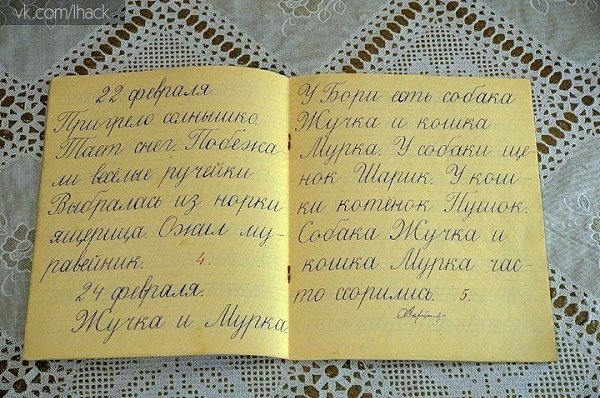 vk.com/lhack
22 февраля.
Пригрело солнышко.
Тает снег. Побежа-
ли весёлые ручейки
Выбралась из норки
ящерица. Ожил му-
равейник. 4.
24 февраля.
Жучка и Мурка
У Бори есть собака
Жучка и кошка
Мурка. У собаки ще
нок Шарик. У кош-
ки котёнок Пушок.
Собака Жучка и
кошка Мурка час-
то ссорились. 5.